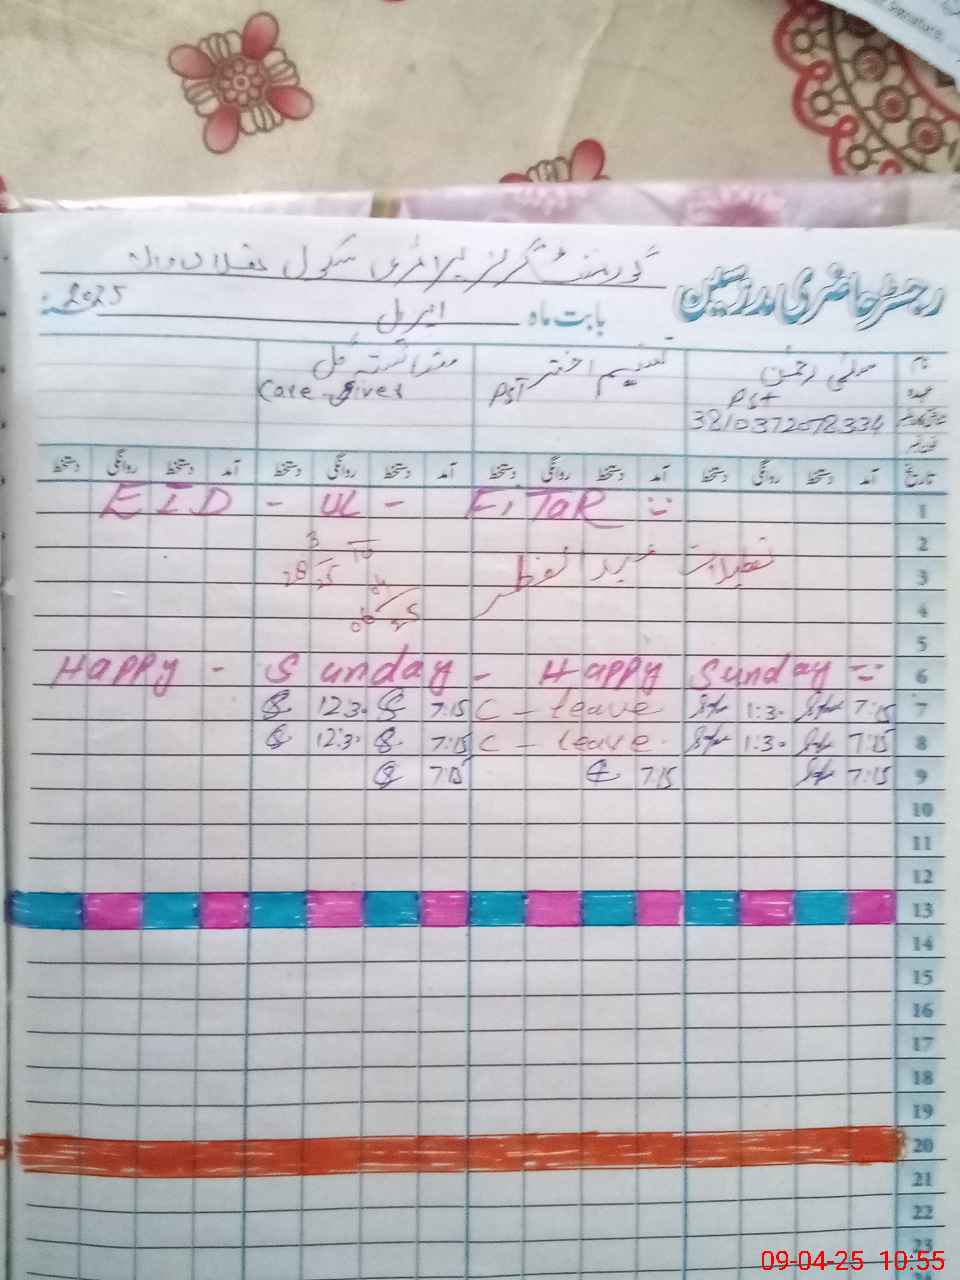 Signature
گورنمنٹ گرلز پرائمری سکول
رجسٹر حاضری مدرسین
بابت ماہ اپریل 2025
نام سلمی رحمٰن تسنیم اختر گل
عہدہ PST PST Care-giver
3810372078334
تاریخ آمد دستخط روانگی دستخط آمد دستخط روانگی دستخط آمد دستخط روانگی دستخط آمد دستخط روانگی دستخط
1 EID - UL - FITAR
2
3 تعطیلات عید الفطر
28 3 25
4
5
6 Happy - Sunday - Happy Sunday
7 7:15 1:30 C - leave 7:15 1230
8 7:15 1:30 C - leave 7:15 12:30
9 7:15 7:15 7:15
10
11
12
13
14
15
16
17
18
19
20
21
22
23
09-04-25 10:55